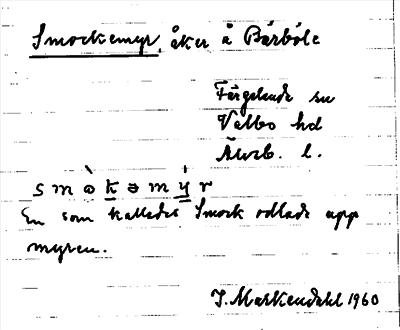 Smockemyr, åker å Bärböle
Färgelanda sn
Valbo hd
Älvsb. l.
s m ò k ə m ý r
En som kallades Smock odlade upp
myren.
J. Markendahl 1960